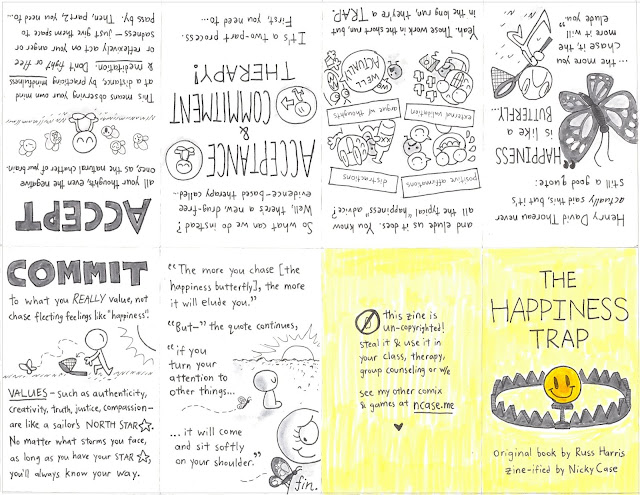 THE
HAPPINESS
TRAP
original book by Russ Harris
zine-ified by Nicky Case
Henry David Thoreau never
actually said this, but it's
still a good quote:
"HAPPINESS
is like a
BUTTERFLY...
... the more you
chase it, the
more it will
elude you."
and elude us it does. You know
all the typical "happiness" advice?
positive affirmations
distractions
external validation
argue w/ thoughts
WELL
ACTUALLY
Yeah. Those work in the short run, but
in the long run, they're a TRAP.
So what can we do instead?
Well, there's a new, drug-free
evidence-based therapy called...
ACCEPTANCE
&
COMMITMENT
THERAPY!
It's a two-part process.
First, you need to...
ACCEPT
all your thoughts, even the negative
ones, as the natural chatter of your brain.
This means observing your own mind
at a distance, by practicing mindfulness
& meditation. Don't fight or flee
or reflexively act on your anger or
sadness – just give them space to
pass by. Then, part 2, you need to...
COMMIT
to what you REALLY value, not
chase fleeting feelings like "happiness".
VALUES – such as authenticity,
creativity, truth, justice, compassion –
are like a sailor's NORTH STAR☆.
No matter what storms you face,
as long as you have your STAR☆,
you'll always know your way.
"The more you chase [the
happiness butterfly], the more
it will elude you."
"But–" the quote continues,
"if you
turn your
attention to
other things...
... it will come
and sit softly
on your shoulder."
fin.
this zine is
un-copyrighted!
steal it & use it in
your class, therapy,
group counseling or w/e
see my other comix
& games at ncase.me
♥